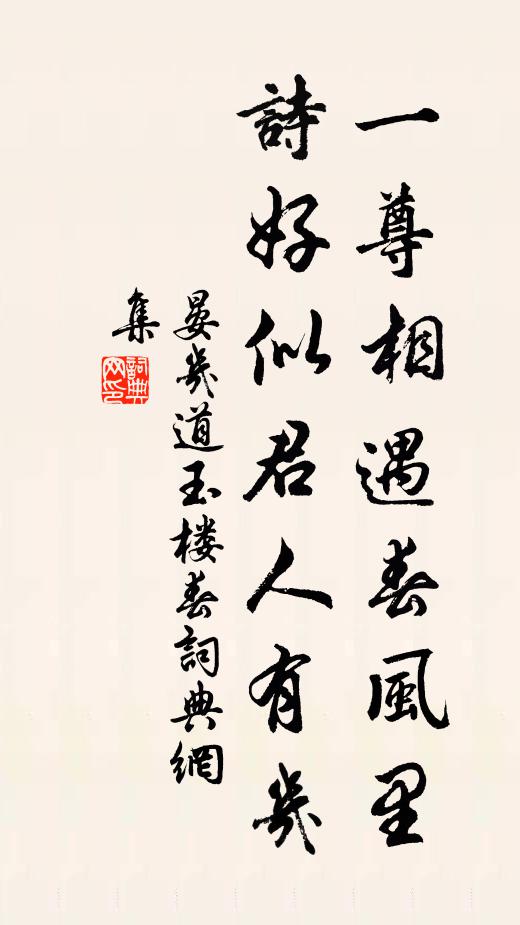 一尊相遇春風里
詩好似君人有幾
晏幾道玉楼春詞典網
集
詞典网印